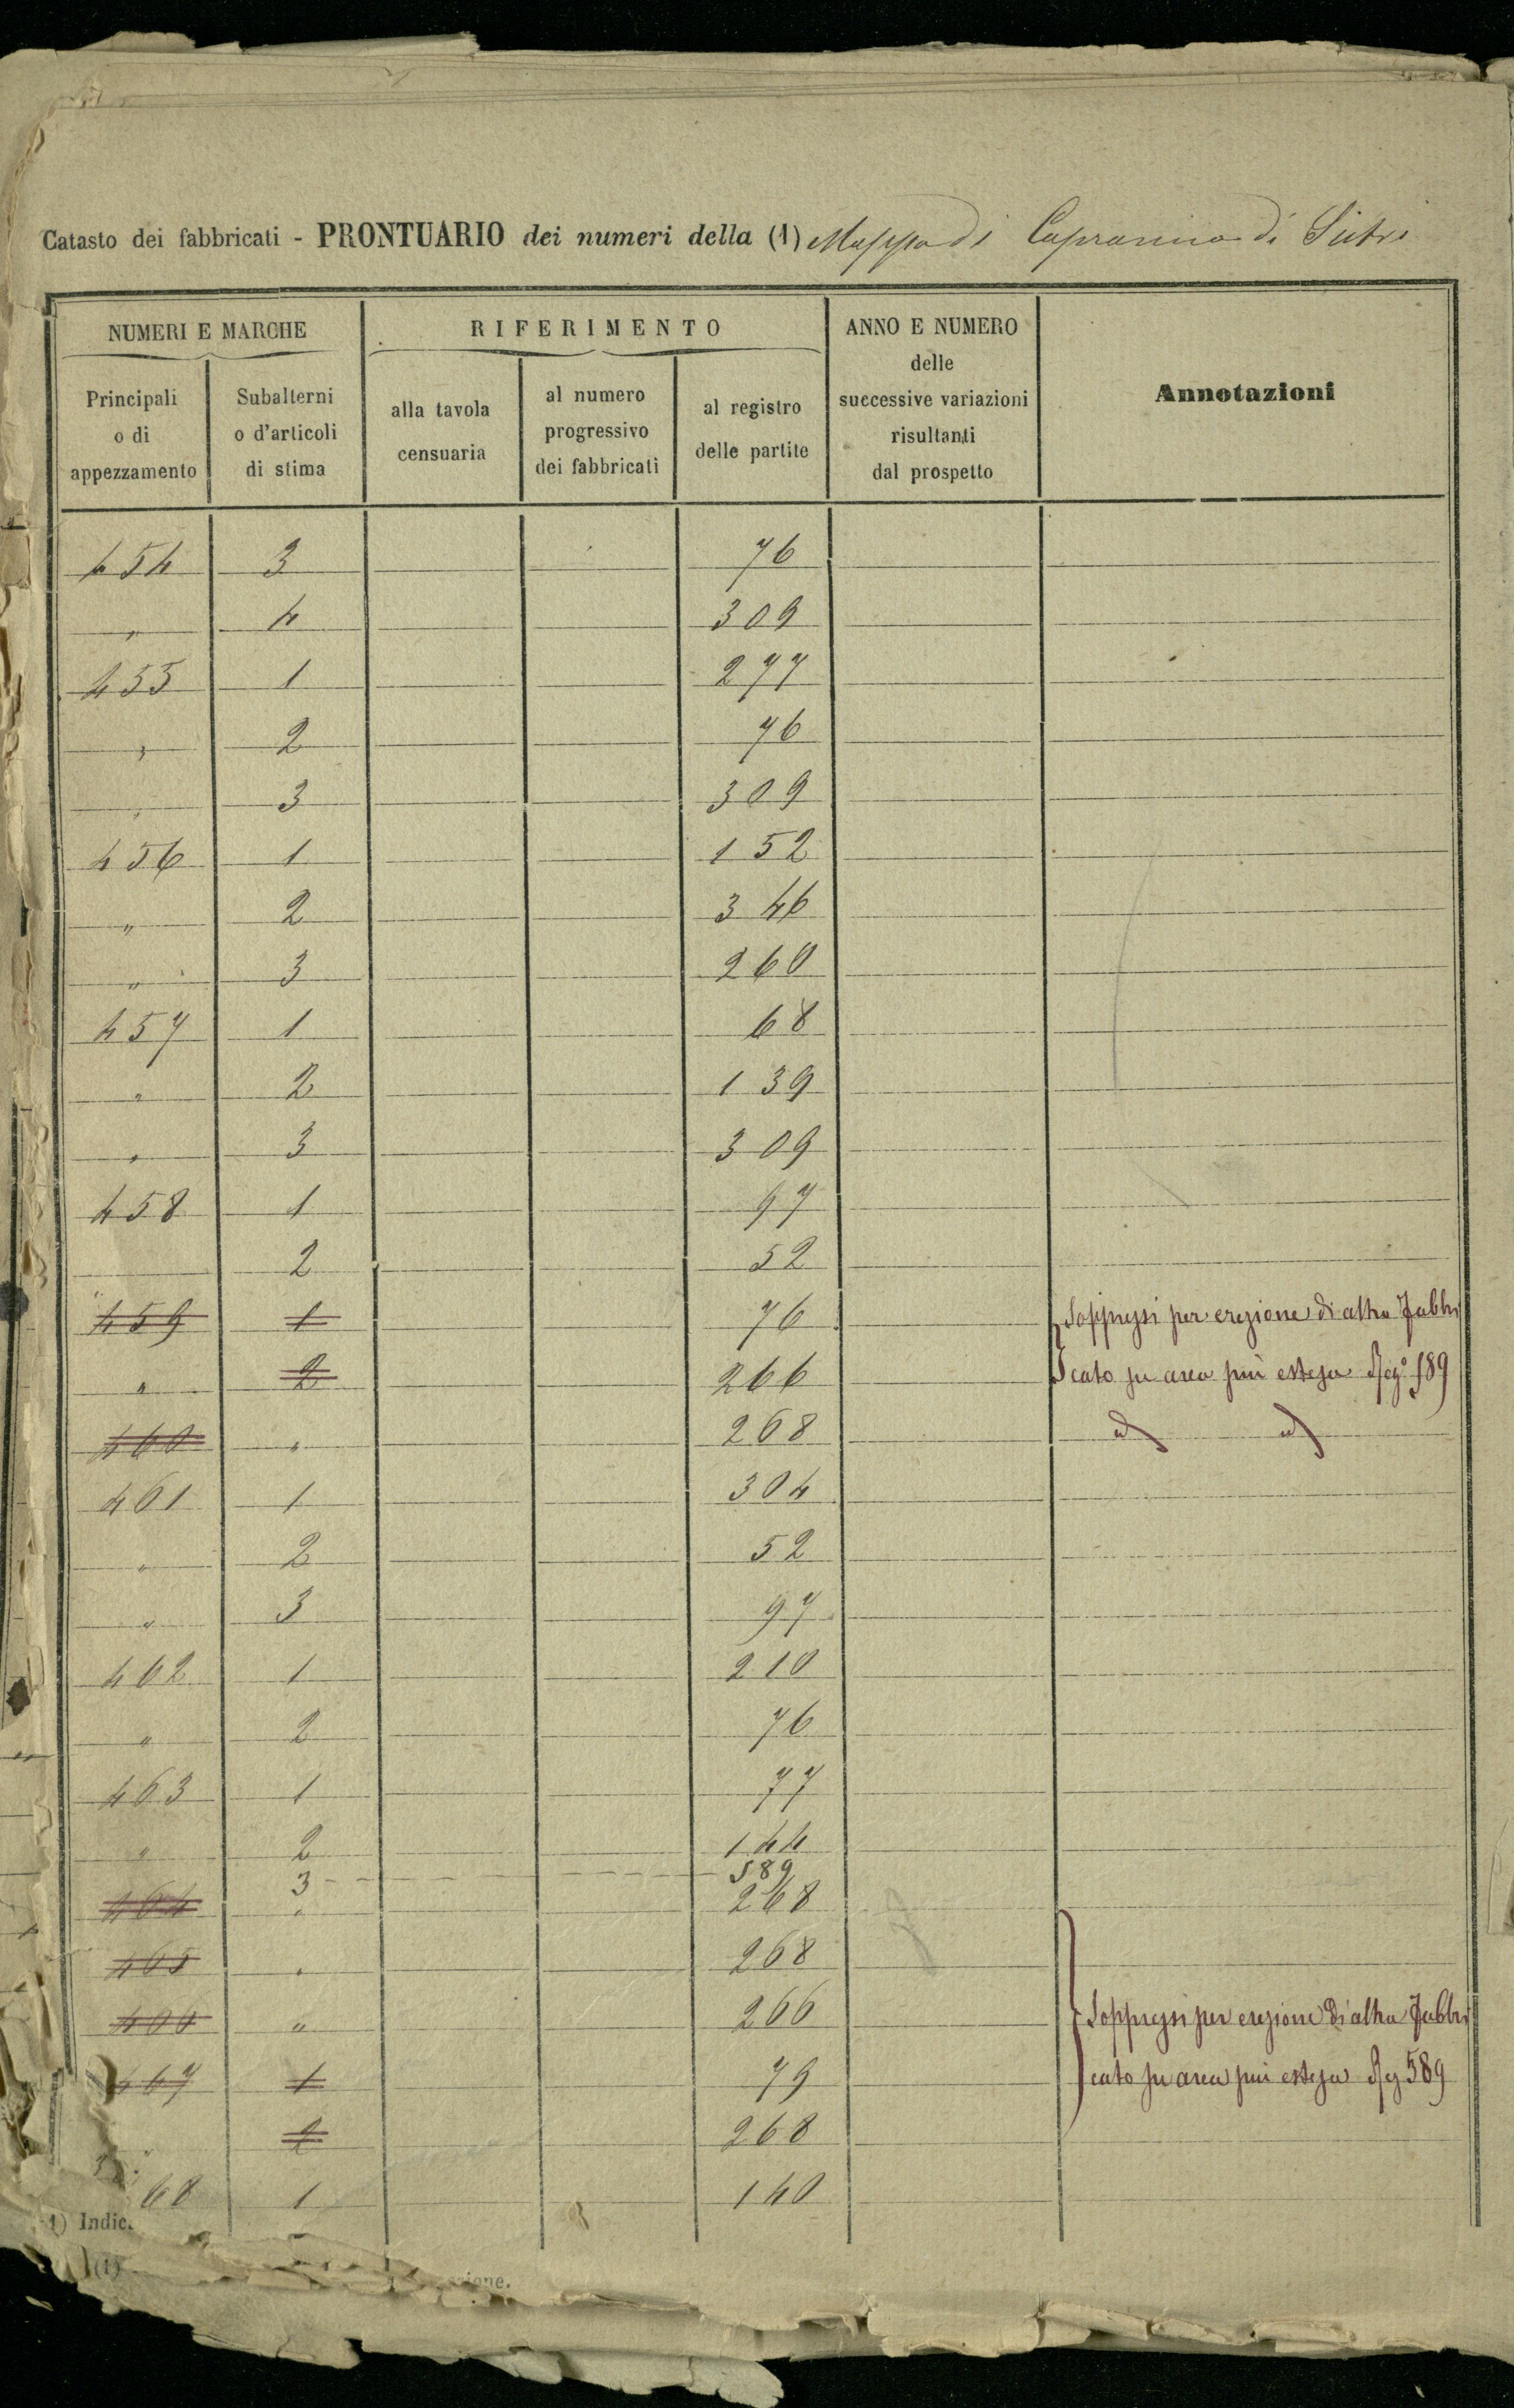 Catasto dei fabbricati - PRONTUARIO dei numeri della (1) Mappa di Capranica di Sutri
NUMERI E MARCHE RIFERIMENTO ANNO E NUMERO delle successive variazioni risultanti dal prospetto Annotazioni
Principali o di appezzamento Subalterni o d'articoli di stima alla tavola censuaria al numero progressivo dei fabbricati al registro delle partite
454 3 76
„ 4 309
455 1 277
„ 2 76
„ 3 309
456 1 152
„ 2 346
„ 3 260
457 1 68
„ 2 139
„ 3 309
458 1 97
2 52
459 1 76 Soppressi per erezione di altro Fabbri
„ 2 266 cato su area più estesa Regº 589
460 „ 268 id id
461 1 304
„ 2 52
„ 3 97
462 1 210
„ 2 76
463 1 77
„ 2 144
3 589
464 „ 268
465 „ 268
466 „ 266 Soppressi per erezione di altro Fabbri
467 1 79 cato su area più estesa Reg 589
„ 2 268
68 1 140
1) Indic
(1)
zione.